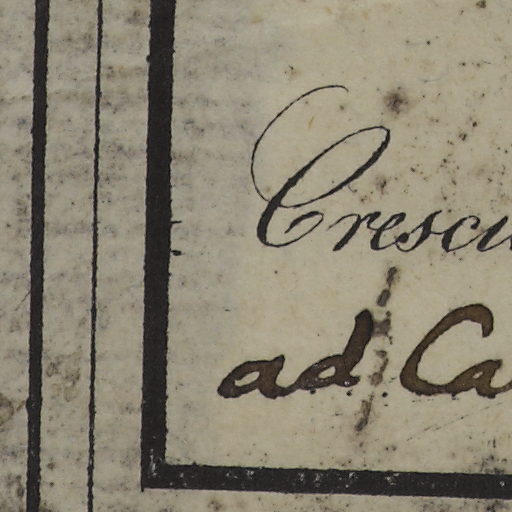 Crescu
ad Ca